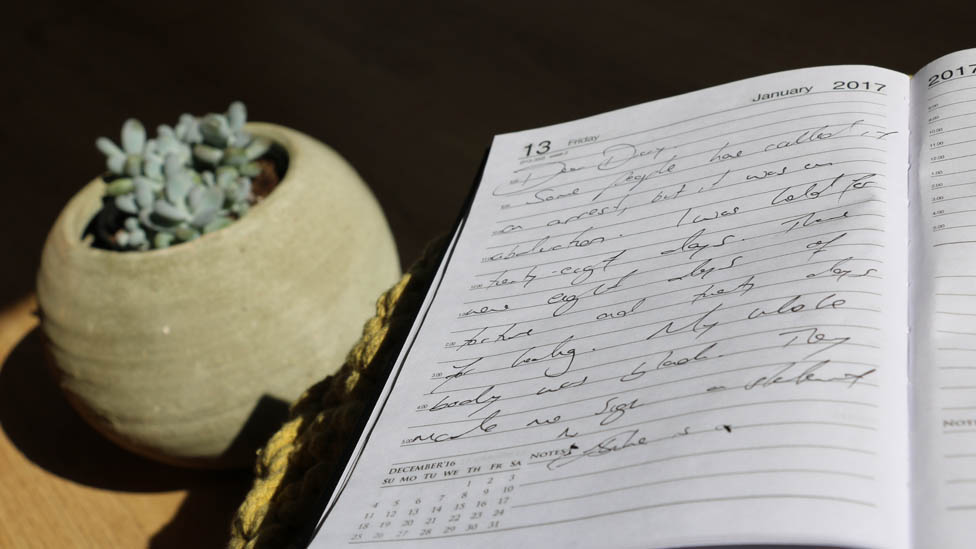 January 2017
13 Friday
Dear Diary.
Some people have called it
an arrest, but it was an
abduction. I was held for
twenty-eight days. There
were eight days of
torture and twenty days
for healing. My whole
body was black. They
made me sign a statement
NOTES
DECEMBER'16
SU MO TU WE TH FR SA
1 2 3
4 5 6 7 8 9 10
11 12 13 14 15 16 17
18 19 20 21 22 23 24
25 26 27 28 29 30 31
2017
9.00
10.00
11.00
12.00
1.00
2.00
3.00
4.00
5.00
NOTES